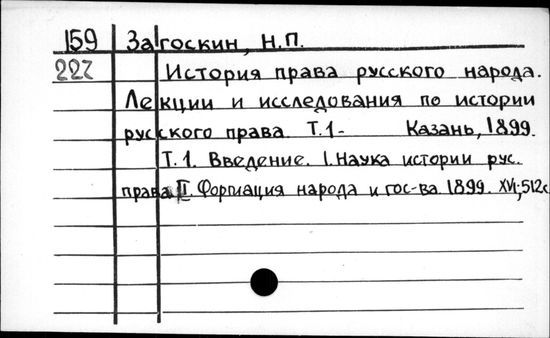 159 Загоскин, Н.П.
222 История права русского народа.
Лекции и исследования по истории
русского права. Т.1- Казань, 1899.
Т.1. Введение. I. Наука истории рус.
права II. Формация народа и гос-ва. 1899. XVI, 512с